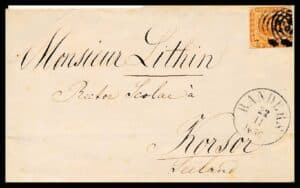 Monsieur Lithin
Rector Scolae à
Korsör
Seeland
RANDERS
22
11